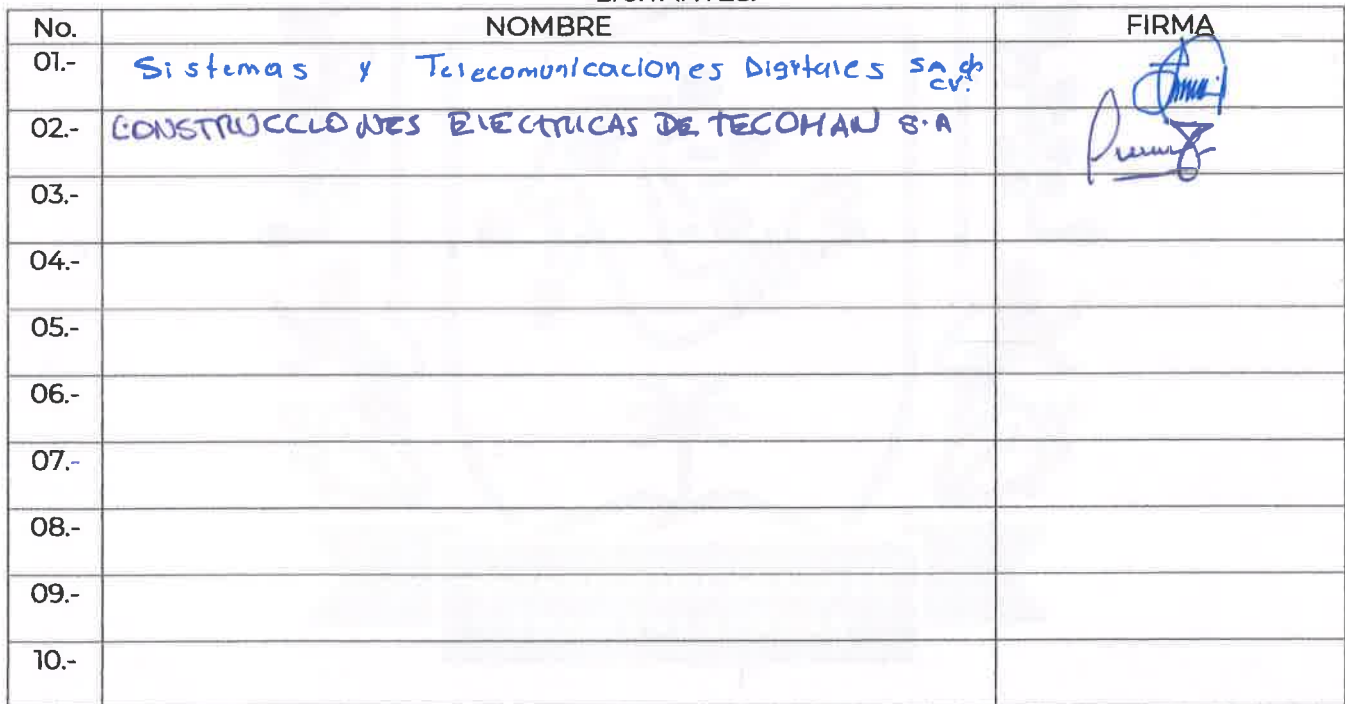 No. NOMBRE FIRMA
01.- Sistemas y Telecomunicaciones Digitales SA de CV.
02.- CONSTRUCCIONES ELECTRICAS DE TECOMAN S.A
03.-
04.-
05.-
06.-
07.-
08.-
09.-
10.-